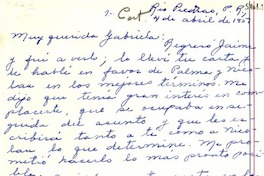 1. Cart Río Piedras, P. R.
4 de abril de 1951
Muy querida Gabriela:
Regresó Jaime
y fui a verlo; le llevé tu carta y
le hablé en favor de Palma y Nico
lau en los mejores términos. Me
dijo que tenía gran interés en com
placerte, que se ocupaba en se
guida del asunto y que les es
cribirá tanto a ti como a Nico
lau lo que determine. Me pro
metió hacerlo lo más pronto posi